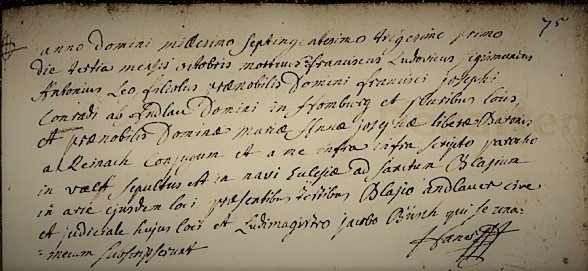 75
anno Domini millesimo septingentesimo trigesimo primo
die tertia mensis octobris mortuus franciscus Ludovicus sigismundus
Antonius Leo filiolus prænobilis Domini francisci josephi
Conradi ab Andlau Domini in fromburg et pluribus locis,
et prænobilis Dominæ mariæ Annæ josephæ liberæ Baronis
a Reinach Conjugum et a me infra scripto parocho
in sepultus est in navi Eulesiæ ad sanctum Blasium
in arce ejusdem loci præsentibus testibus Blasio andlauer cive
et judiciale hujus loci et Ludimagistro jacobo Büsch qui se una-
=mecum subscripserunt